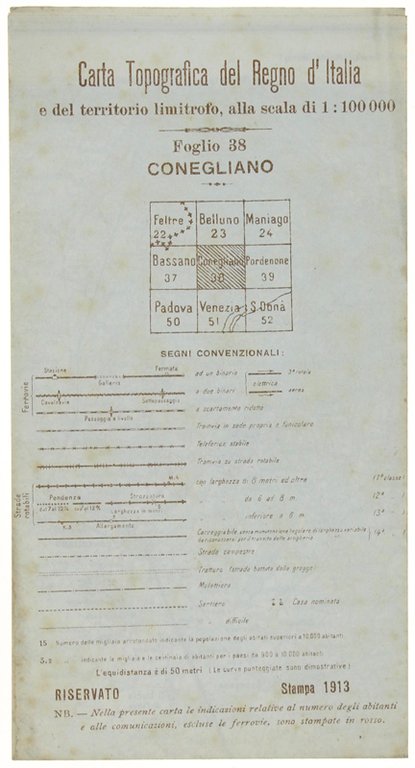 Carta Topografica del Regno d'Italia
e del territorio limitrofo, alla scala di 1:100000
Foglio 38
CONEGLIANO
Feltre Belluno Maniago
22 23 24
Bassano Conegliano Pordenone
37 38 39
Padova Venezia S. Donà
50 51 52
SEGNI CONVENZIONALI:
Ferrovie
Stazione Galleria Fermata ad un binario
Cavalcavia Sottopassaggio a due binari elettrica aerea
Passaggio a livello a scartamento ridotto
Tramvia in sede propria e funicolare
Teleferica stabile
Tramvia su strada rotabile
Strade rotabili
con larghezza di 8 metri ed oltre 11ª classe
Pendenza Strozzatura da 6 ad 8 m. 12ª
Larghezza in metri
Allargamento inferiore a 6 m. 13ª
14ª
Strada campestre
Tratturo (strada battuta dalle greggi)
Mulattiera
Sentiero Casa nominata
" difficile
15 Numero delle migliaia arrotondato indicante la popolazione degli abitati superiori a 10.000 abitanti.
indicante le migliaia e le centinaia di abitanti per i paesi da 900 a 10.000 abitanti
L'equidistanza è di 50 metri (Le curve punteggiate sono dimostrative)
RISERVATO Stampa 1913
NB. — Nella presente carta le indicazioni relative al numero degli abitanti
e alle comunicazioni, escluse le ferrovie, sono stampate in rosso.